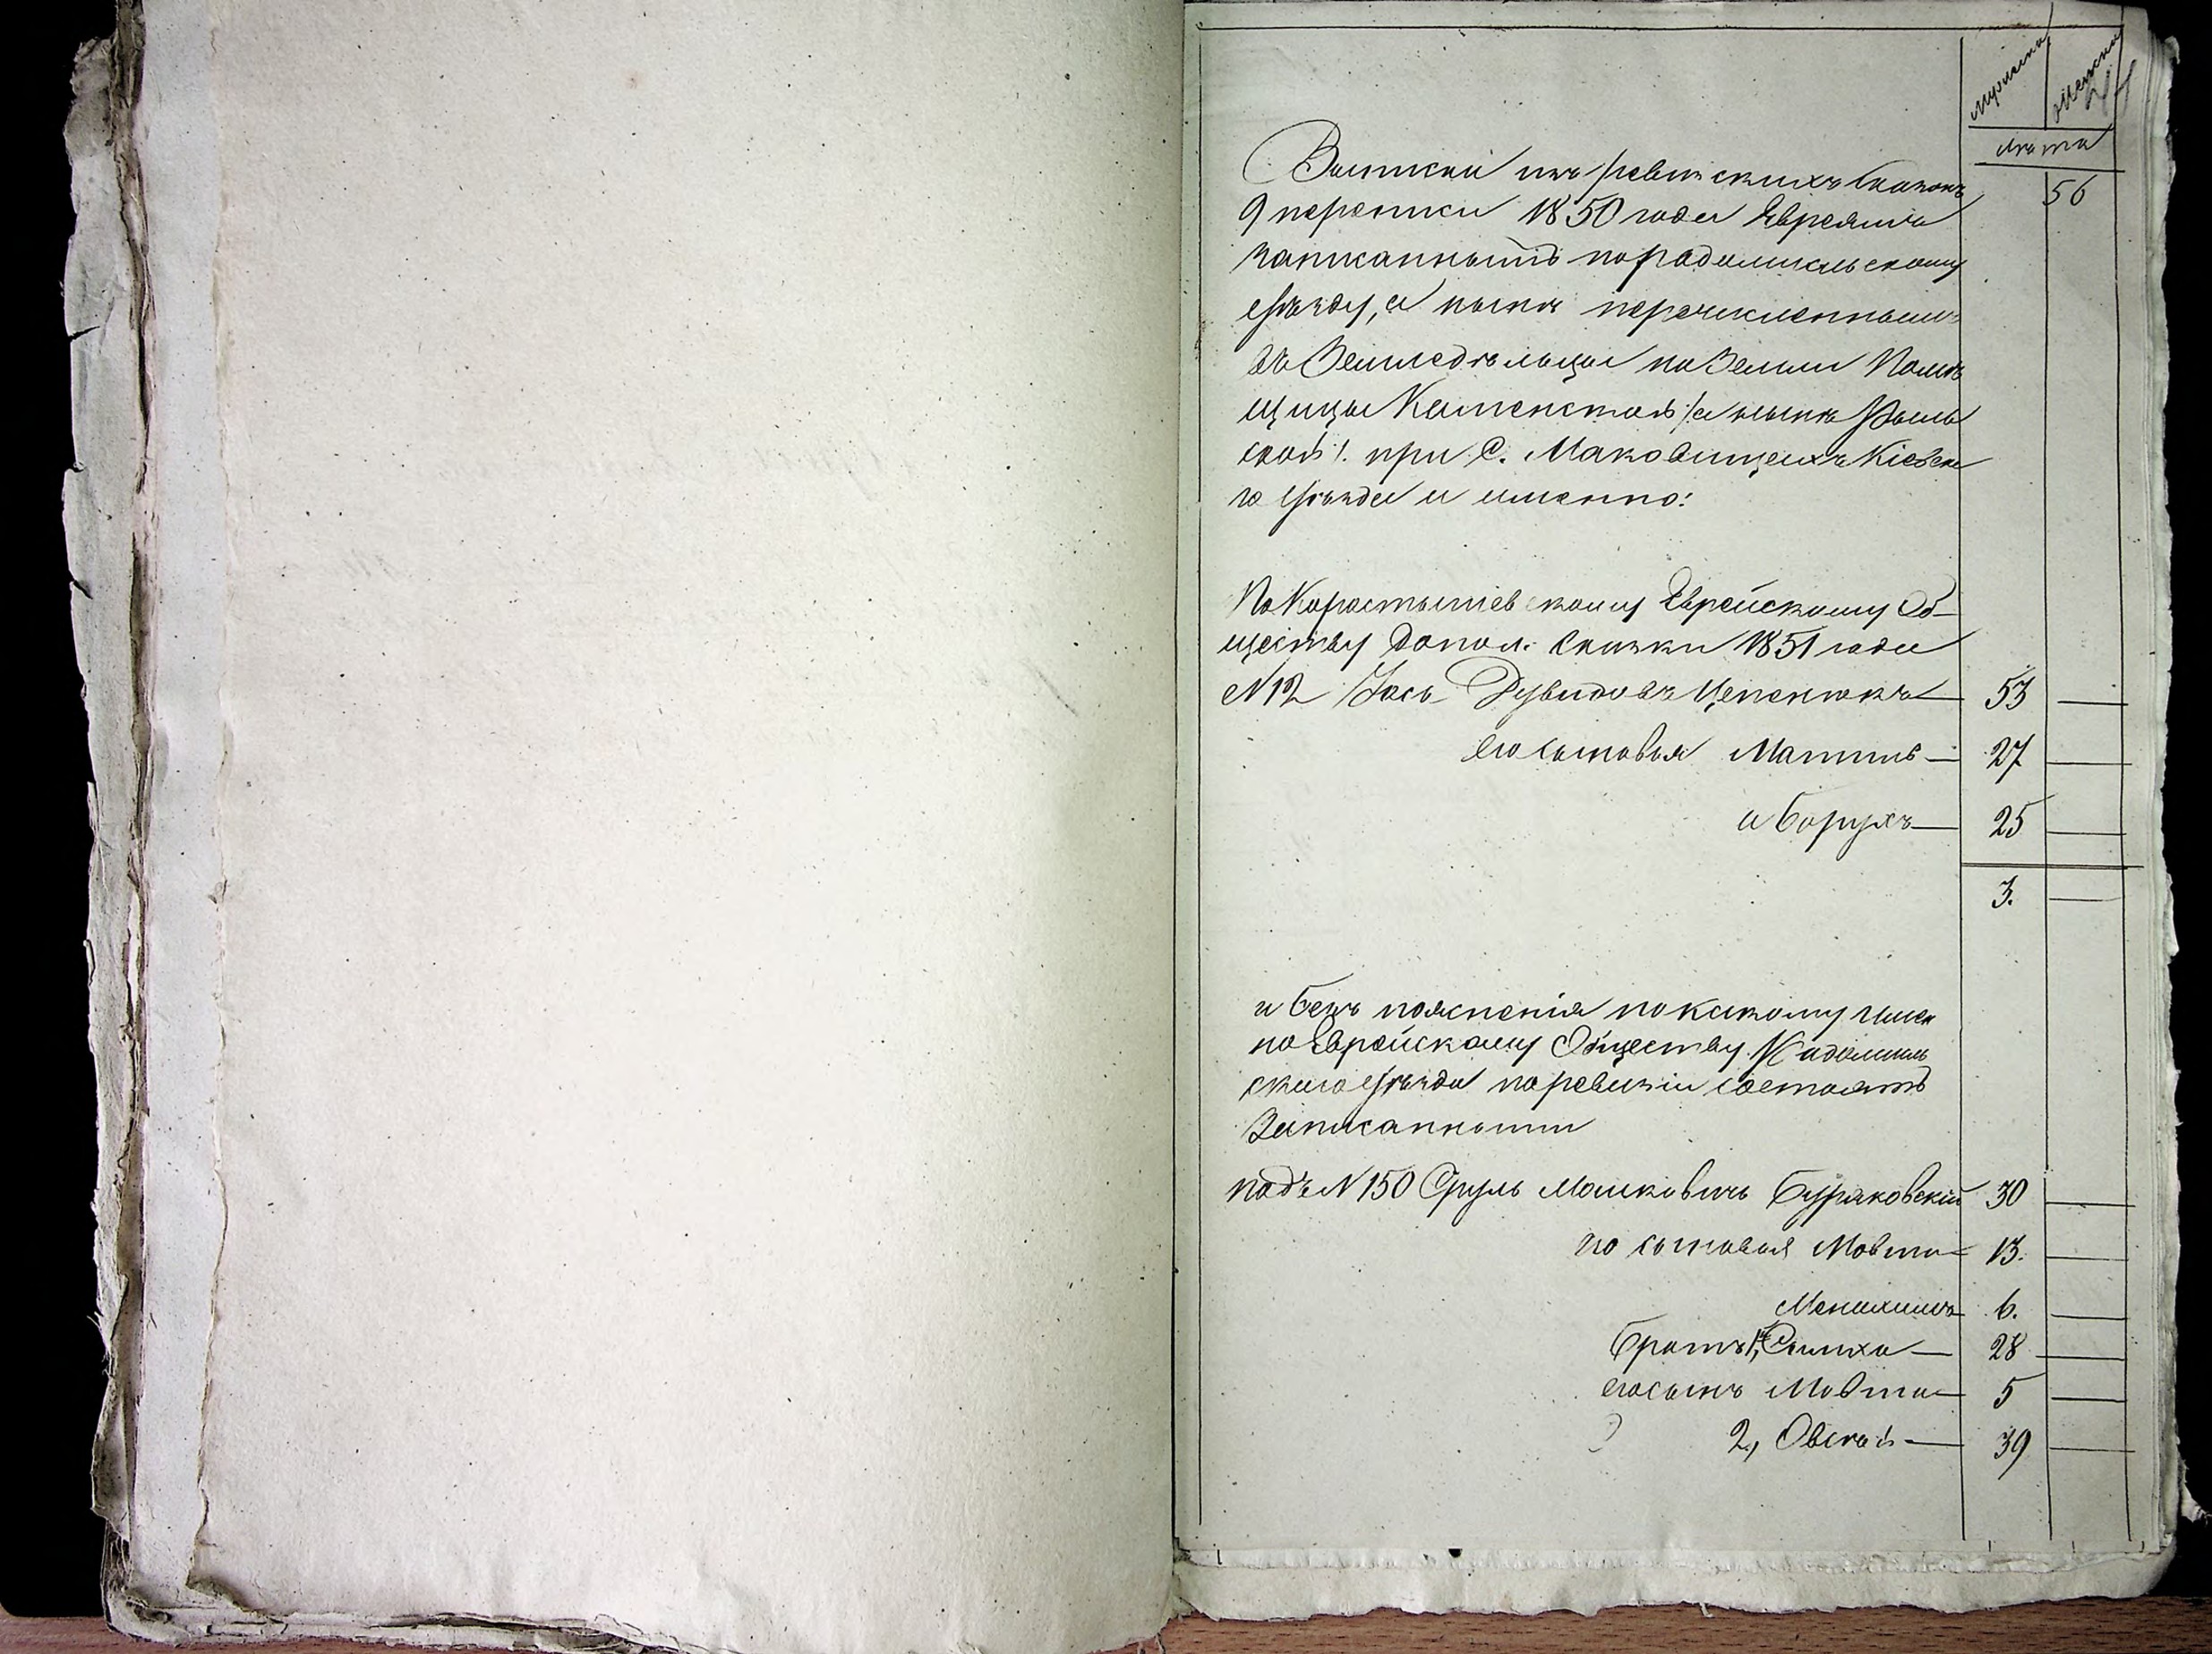 Мужеска
Женска
Лѣта
56
Выписки изъ ревизскихъ сказокъ
9 переписи 1850 года Евреямъ
записаннымъ по Радомысльскому
уѣзду, а нынѣ перечисленнымъ
въ Земледѣльцы на Земли Помѣ
щицы Каменской /а нынѣ
ской/. при С. Маковищахъ Кіевска
го уѣзда и именно:
По Коростышевскому Еврейскому Об-
ществу допол. сказки 1851 года
№ 12 Іось Дувидовъ Цепенюкъ — 53 —
его сыновья Матти — 27 —
и Борухъ — 25 —
3. —
и безъ поясненія по какому имен
но Еврейскому Обществу Радомысль
скаго уѣзда по ревизіи состоятъ
Записанными
подъ № 150 Сруль Мошковичъ Буряковскій 30 —
его сыновья Мовша — 13. —
Менахимъ 6. —
братъ 1, Симха — 28 —
его сынъ Мовша — 5 —
2, Овсѣй — 39 —